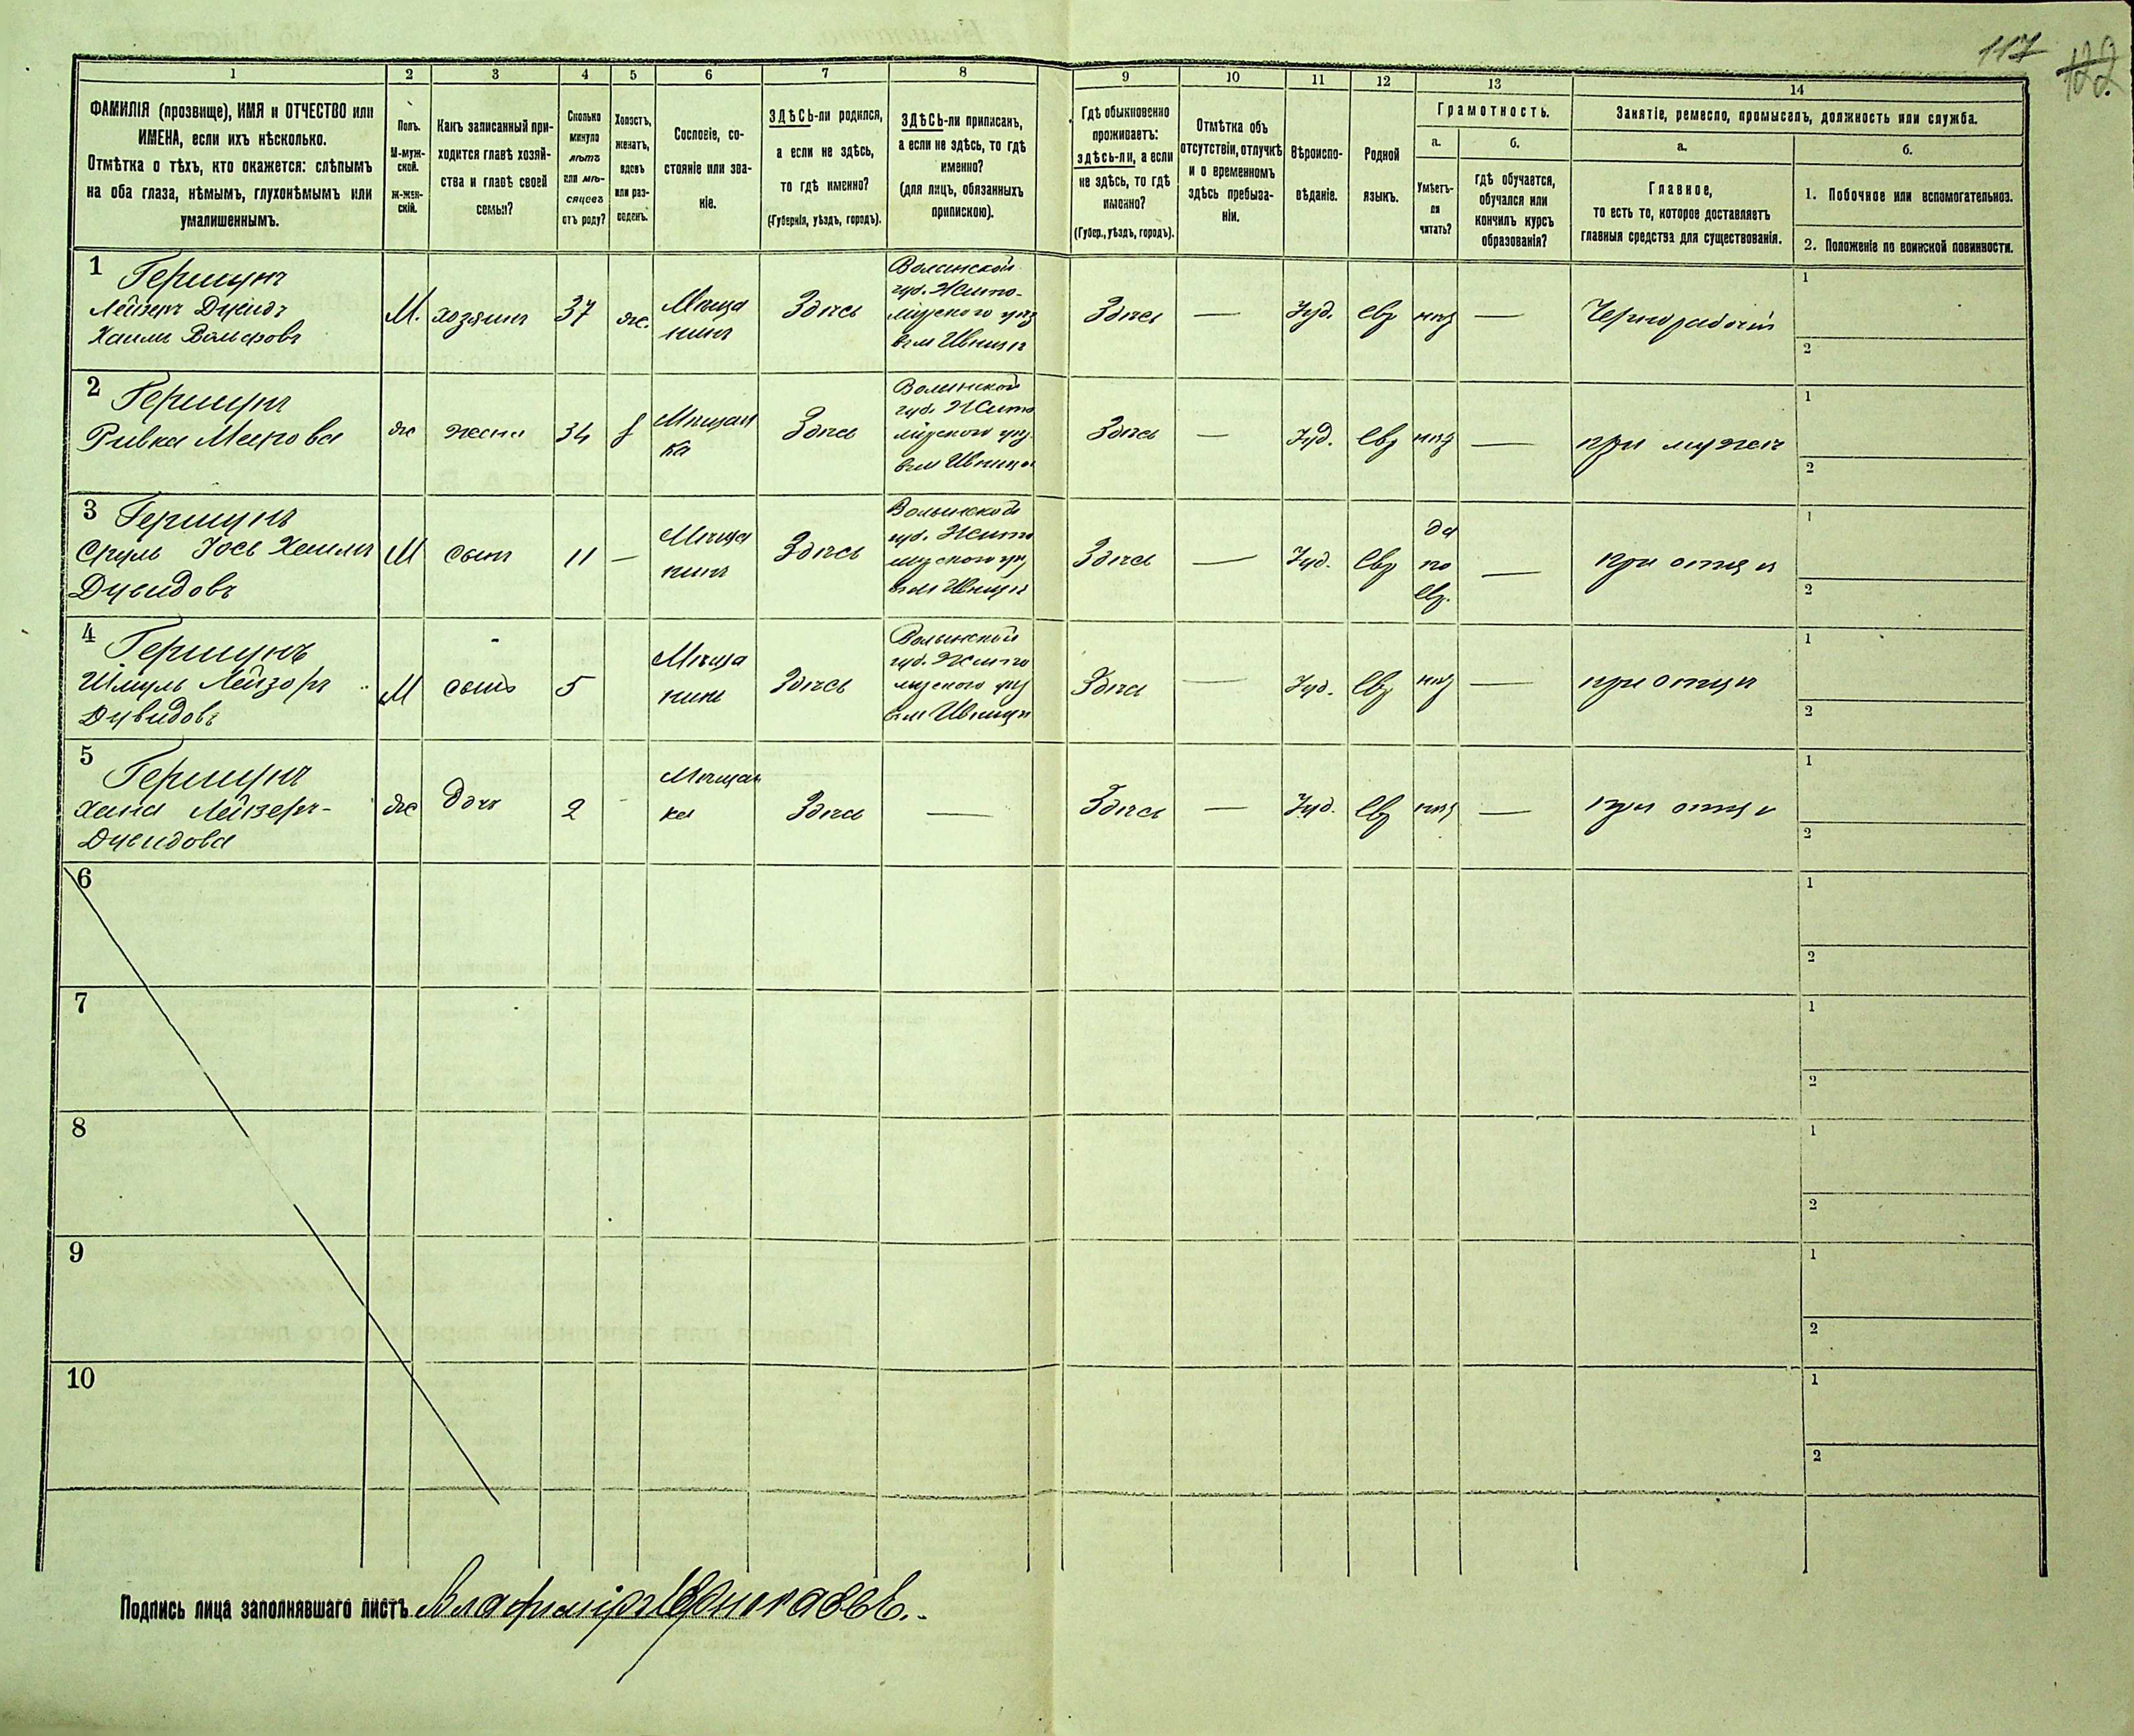 117
122
1 2 3 4 5 6 7 8 9 10 11 12 13 14
ФАМИЛІЯ (прозвище), ИМЯ и ОТЧЕСТВО или
ИМЕНА, если ихъ нѣсколько.
Отмѣтка о тѣхъ, кто окажется: слѣпымъ
на оба глаза, нѣмымъ, глухонѣмымъ или
умалишеннымъ.
Полъ.
М-муж-
ской.
Ж-жен-
скій.
Какъ записанный при-
ходится главѣ хозяй-
ства и главѣ своей
семьи?
Сколько
минуло
лѣтъ
или мѣ-
сяцевъ
отъ роду?
Холостъ,
женатъ,
вдовъ
или раз-
веденъ.
Сословіе, со-
стояніе или зва-
ніе.
ЗДѢСЬ-ли родился,
а если не здѣсь,
то гдѣ именно?
(Губернія, уѣздъ, городъ).
ЗДѢСЬ-ли приписанъ,
а если не здѣсь, то гдѣ
именно?
(для лицъ, обязанныхъ
припискою).
Гдѣ обыкновенно
проживаетъ:
здѣсь-ли, а если
не здѣсь, то гдѣ
именно?
(Губер., уѣздъ, городъ).
Отмѣтка объ
отсутствіи, отлучкѣ
и о временномъ
здѣсь пребыва-
ніи.
Вѣроиспо-
вѣданіе.
Родной
языкъ.
Грамотность.
а.
Умѣетъ-
ли
читать?
б.
гдѣ обучается,
обучался или
кончилъ курсъ
образованія?
Занятіе, ремесло, промыселъ, должность или служба.
а.
Главное,
то есть то, которое доставляетъ
главныя средства для существованія.
б.
1. Побочное или вспомогательное.
2. Положеніе по воинской повинности.
1
Гершунъ
Хаимъ Вольфовъ
М.
хозяинъ
37
ж.
Мѣща
нинъ
Здѣсь
Волынской
губ. Жито-
мірскаго уѣз
Здѣсь
—
Іуд.
евр
—
Чернорабочій
1
2
2
Гершунъ
Ривка
ж
жена
34
Мѣщан
ка
Здѣсь
Волынской
губ. Жито
Здѣсь
—
Іуд.
евр
—
при мужѣ
1
2
3
Гершунъ
Сруль Іось
М
сынъ
11
—
Мѣща
нинъ
Здѣсь
Волынской
губ. Жито
Здѣсь
—
Іуд.
евр
да
по
евр.
—
при отцѣ
1
2
4
Гершунъ
Шмуль Лейзоръ
Дувидовъ
М
сынъ
5
Мѣща
нинъ
Здѣсь
Волынской
губ. Жито
Здѣсь
—
Іуд.
евр
—
при отцѣ
1
2
5
Гершунъ
Хана Лейзеръ-
ж
дочь
2
-
Мѣщан
ка
Здѣсь
—
Здѣсь
—
Іуд.
евр
—
при отцѣ
1
2
6
1
2
7
1
2
8
1
2
9
1
2
10
1
2
Подпись лица заполнявшаго листъ